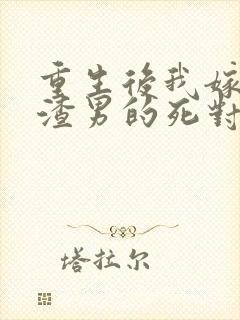 重生後我嫁
渣男的死對
塔拉尔